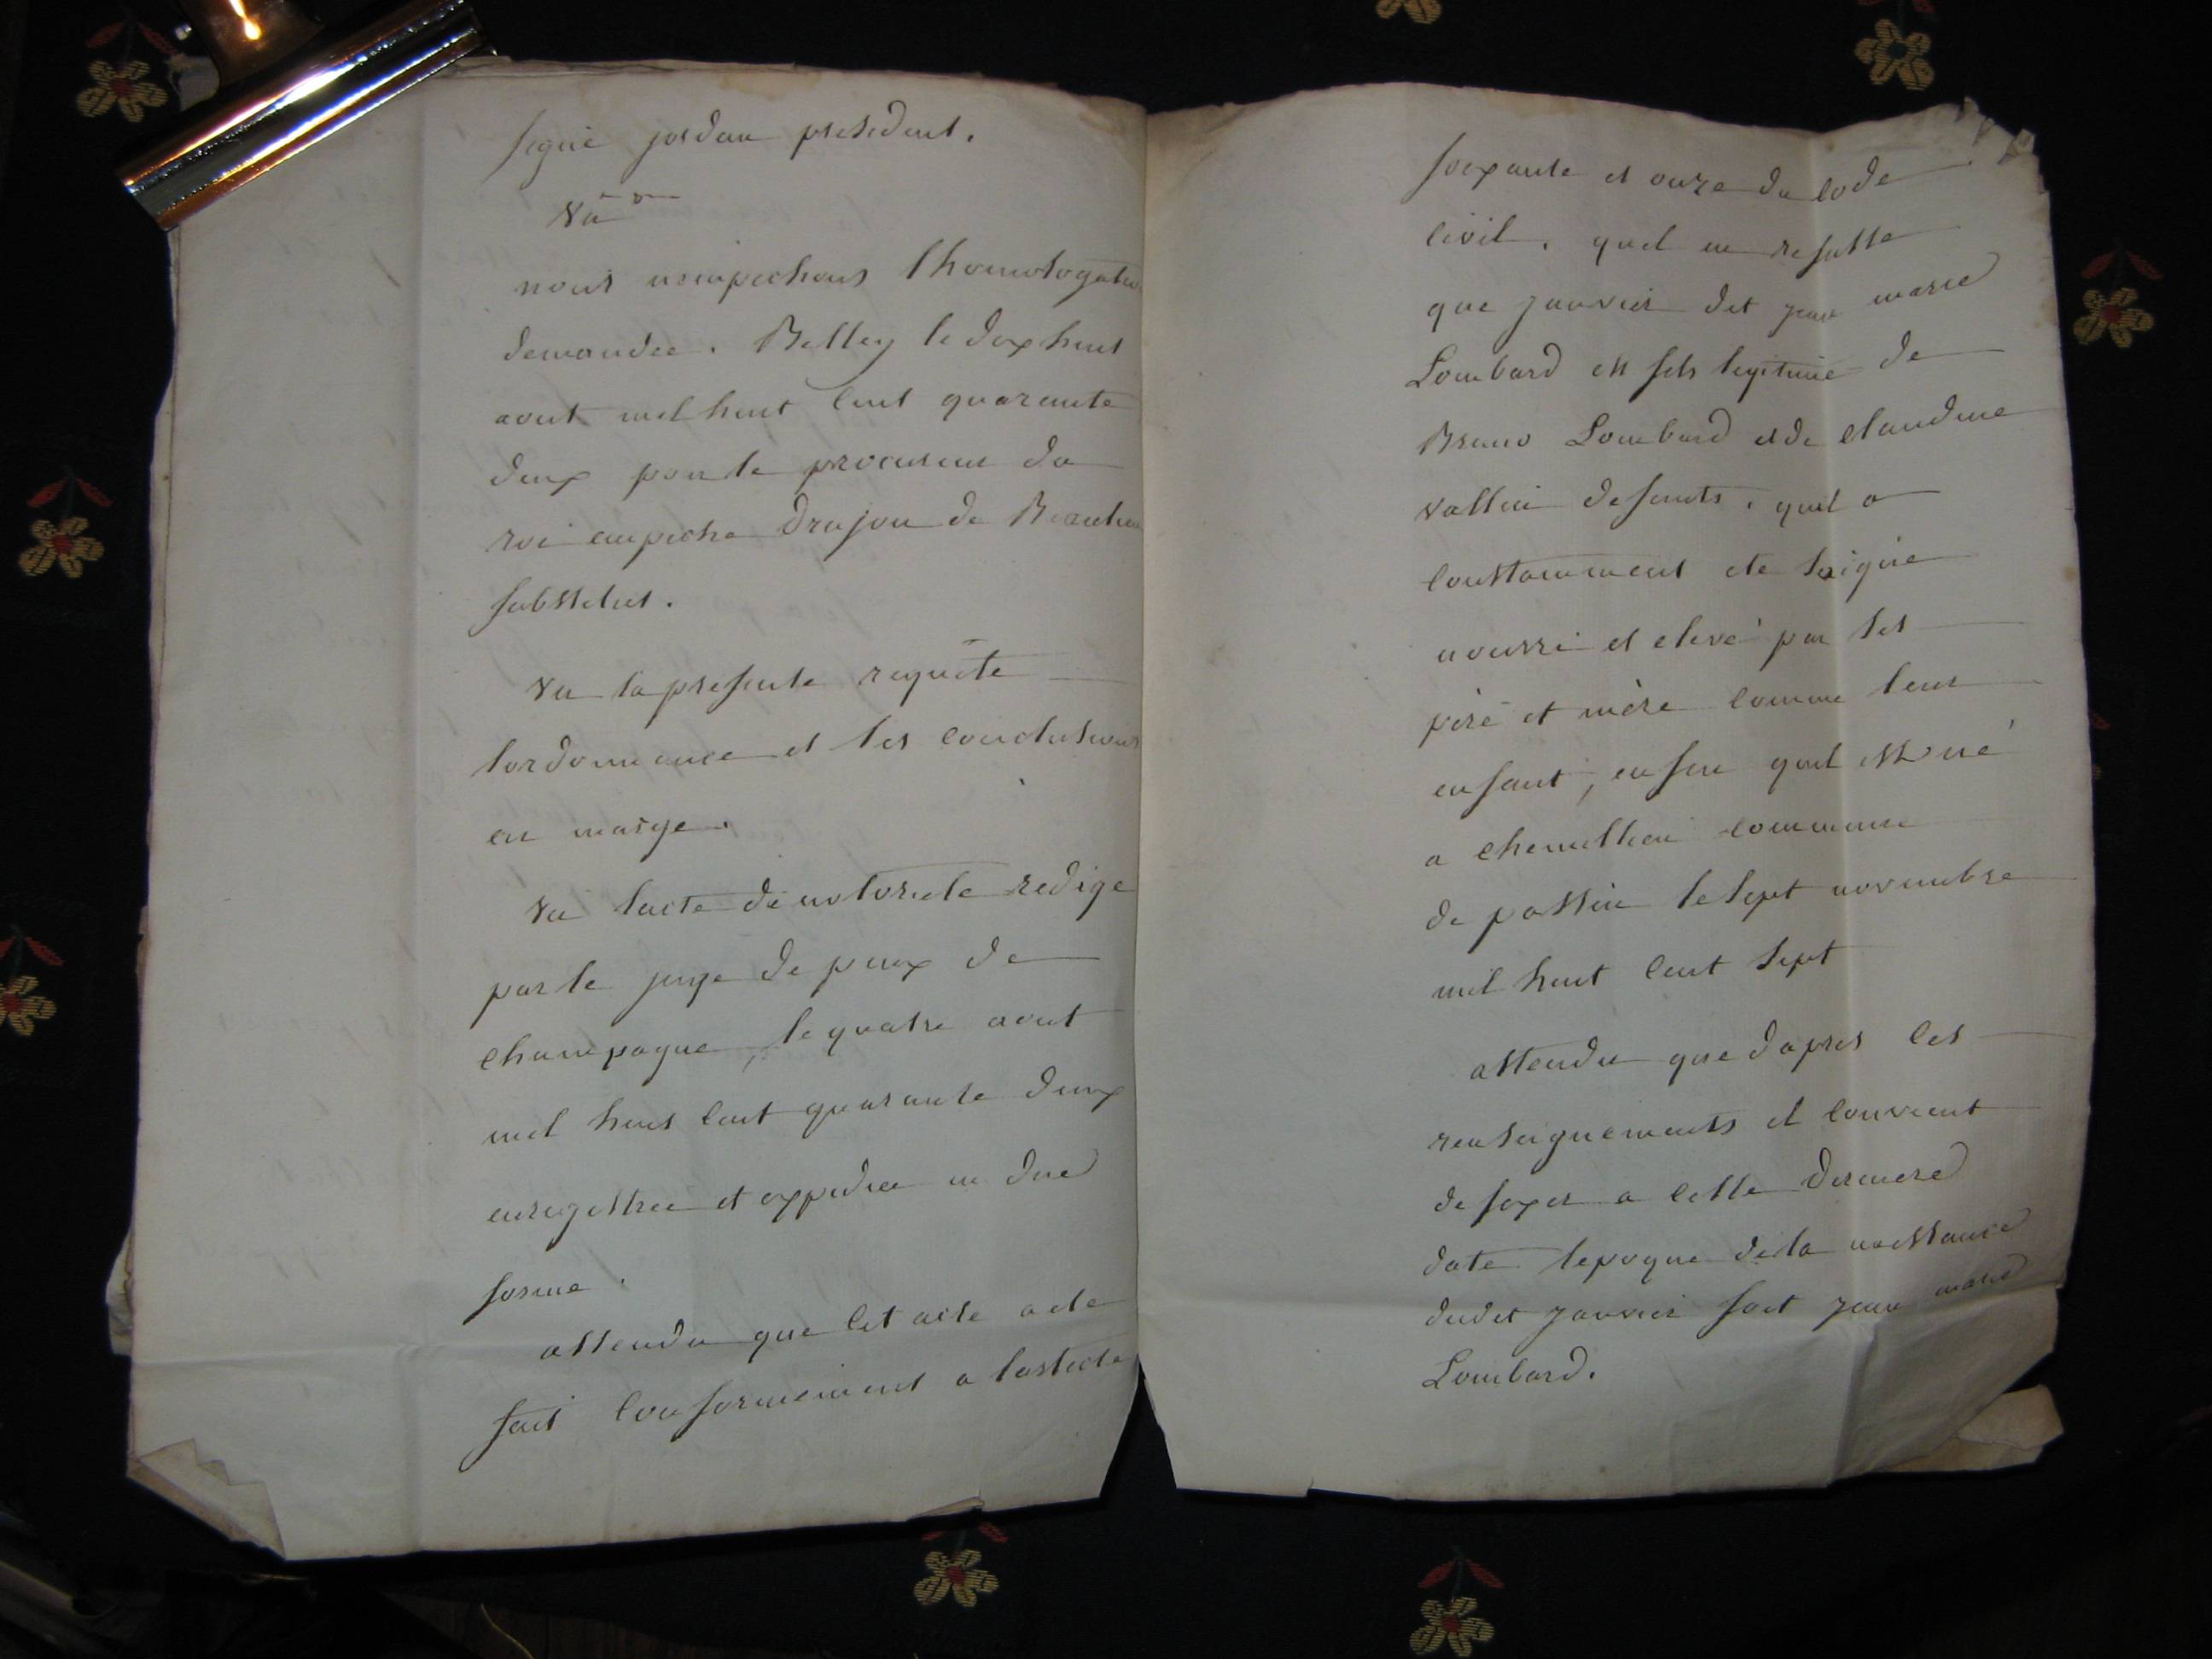 signé jordan president.
Vu
nous nempechons lhomologation
demandée. Belley le dix huit
aout mil huit cent quarante
deux pour le procureur du
roi empeché Drujon de Beaulieu
substitut.
Vu la presente requête
lordonnance et les conclusions
en marge.
Vu lacte de notorieté redigé
par le juge de paix de
champagne, le quatre aout
mil huit cent quarante deux
enregistrée et expediée en due
forme.
attendu que cet acte a ete
fait conformement a larticle
soixante et onze du code
civil. quil en resulte
que janvier dit jean marie
Lombard est fils legitime de
Bruno Lombard et de claudine
vallin defunts. quil a
constamment ete soigné
nourri et elevé par ses
père et mère comme leur
enfant, enfin quil est né
a chemillieu commune
de passin le sept novembre
mil huit cent sept
attendu que dapres les
renseignements il convient
de fixer a cette derniere
date lepoque de la naissance
dudit janvier soit jean marie
Lombard.